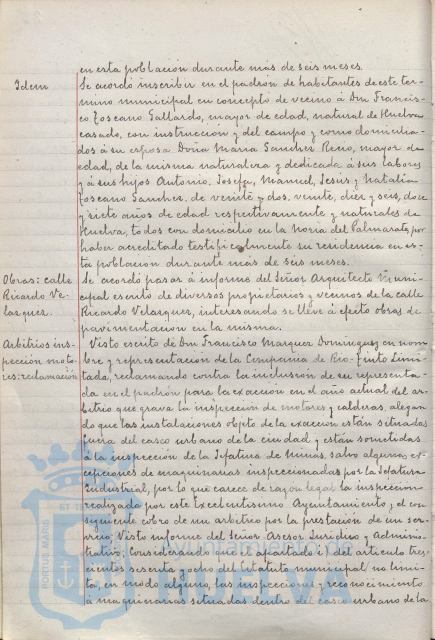 en esta poblacion durante más de seis meses.
Idem
Se acordó inscribir en el padrón de habitantes de este ter-
mino municipal en concepto de vecino á Don Francis-
co Toscano Gallardo, mayor de edad, natural de Huelva
casado, con instruccion y del campo y como domicilia-
dos á su esposa Doña Maria Sanchez Reno, mayor de
edad, de la misma naturaleza y dedicada á sus labores
y á sus hijos Antonio, Josefa, Manuel, Jesús y Natalia
Toscano Sanchez, de veinte y dos, veinte, diez y seis, doce
y siete años de edad respectivamente y naturales de
Huelva, todos con domicilio en la Noria del Palmarate, por
haber acreditado testificalmente su residencia en es-
ta poblacion durante más de seis meses.
Obras: calle
Ricardo Ve-
lazquez.
Se acordó pasar á informe del Señor Arquitecto Muni-
cipal escrito de diversos propietarios y vecinos de la calle
Ricardo Velazquez, interesando se lleve á efecto obras de
pavimentacion en la misma.
Arbitrios ins-
pección moto-
res: reclamación
Visto escrito de Don Francisco Marquez Dominguez en nom
bre y representación de la Compañia de Rio-Tinto Limi-
tada, reclamando contra la inclusion de su representa-
da en el padrón para la exaccion en el año actual del ar-
bitrio que grava la inspeccion de motores y calderas, alegan
do que las instalaciones objeto de la exaccion están situadas
fuera del casco urbano de la ciudad y están sometidas
á la inspección de la Jefatura de Minas, salvo algunas ex-
cepciones de maquinarias inspeccionadas por la Jefatura
Industrial, por lo que carece de razon legal la inspeccion
realizada por este Excelentisimo Ayuntamiento y el con-
siguiente cobro de un arbitrio por la prestacion de un ser-
vicio; Visto informe del Señor Asesor Juridico y Adminis-
trativo; Considerando que el apartado i) del articulo tres-
cientos sesenta y ocho del Estatuto municipal no limi-
ta, en modo alguno, las inspecciones y reconocimiento
á maquinarias situadas dentro del casco urbano de la
PORTUS MARIS
Ayuntamiento de
HUELVA